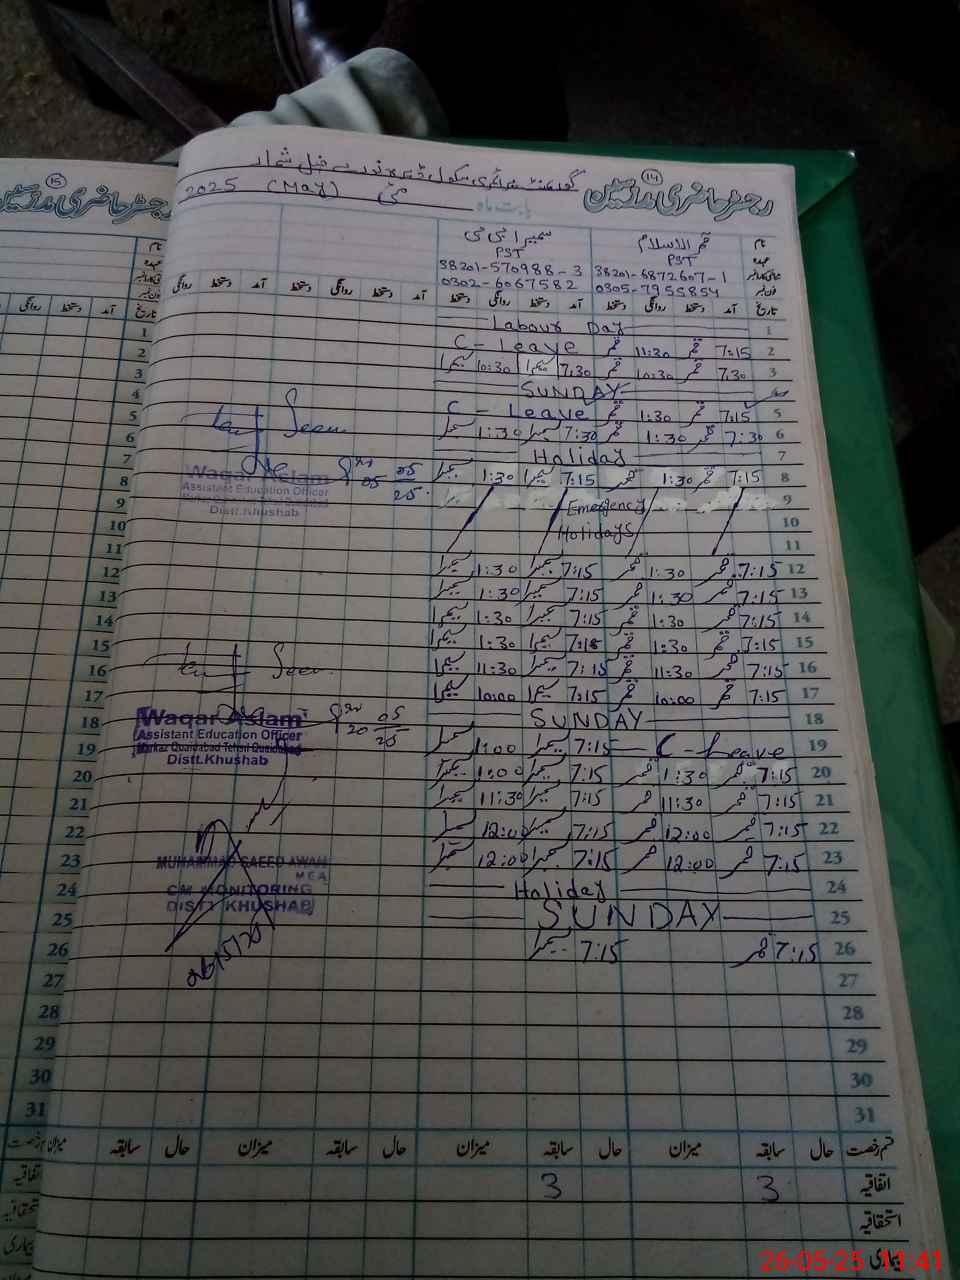 رجسٹر حاضری مدرسین
15
14
رجسٹر حاضری مدرسین
گورنمنٹ پرائمری سکول
بابت ماہ مئی (May) 2025
نام قمر الاسلام سمیرا بی بی
عہدہ PST PST
38201-6872607-1 38201-570988-3
0305-7955854 0302-6067582
تاریخ آمد دستخط روانگی دستخط آمد دستخط روانگی دستخط آمد دستخط روانگی دستخط آمد دستخط روانگی
1 Labour Day
2 7:15 قمر 11:30 قمر C-Leave
3 7:30 قمر 10:30 قمر 7:30 سمیرا 10:30 سمیرا
4 SUNDAY
5 7:15 قمر 1:30 قمر C-Leave
6 7:30 قمر 1:30 قمر 7:30 سمیرا 1:30 سمیرا
7 Holiday
8 7:15 قمر 1:30 قمر 7:15 سمیرا 1:30 سمیرا
9 Emergency
10 Holidays
11
12 7:15 قمر 1:30 قمر 7:15 سمیرا 1:30 سمیرا
13 7:15 قمر 1:30 قمر 7:15 سمیرا 1:30 سمیرا
14 7:15 قمر 1:30 قمر 7:15 سمیرا 1:30 سمیرا
15 7:15 قمر 1:30 قمر 7:15 سمیرا 1:30 سمیرا
16 7:15 قمر 11:30 قمر 7:15 سمیرا 11:30 سمیرا
17 7:15 قمر 10:00 قمر 7:15 سمیرا 10:00 سمیرا
18 SUNDAY
19 C-Leave 7:15 سمیرا 1:00 سمیرا
20 7:15 قمر 1:30 قمر 7:15 سمیرا 1:00 سمیرا
21 7:15 قمر 11:30 قمر 7:15 سمیرا 11:30 سمیرا
22 7:15 قمر 12:00 قمر 7:15 سمیرا 12:00 سمیرا
23 7:15 قمر 12:00 قمر 7:15 سمیرا 12:00 سمیرا
24 Holiday
25 SUNDAY
26 7:15 قمر 7:15 سمیرا
27
28
29
30
31
Seen
05 05 25
Waqar Aslam
Assistant Education Officer
Distt.Khushab
Seen
20 05 25
Waqar Aslam
Assistant Education Officer
Markaz Quaidabad Tehsil Quaidabad
Distt.Khushab
MUHAMMAD SAEED AWAN
MEA
CM MONITORING
DISTT KHUSHAB
26/5/20
قسم رخصت حال سابقہ میزان حال سابقہ میزان حال سابقہ میزان حال سابقہ میزان
اتفاقیہ 3 3
استحقاقیہ
بیماری
26-05-25 11:41